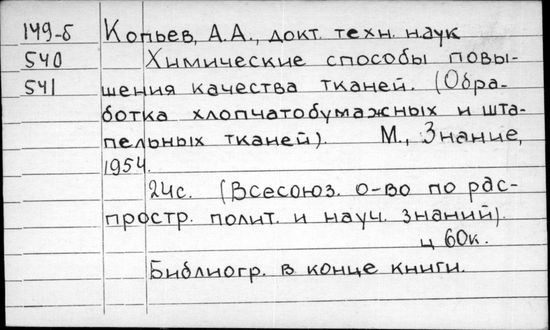 149-5 Копьев, А.А., докт. техн. наук
540 Химические способы повы-
541 шения качества тканей. (Обра-
ботка хлопчатобумажных и шта-
пельных тканей). М., Знание,
1954.
24с. (Всесоюз. о-во по рас-
простр. полит. и науч. знаний).
ц 60к.
Библиогр. в конце книги.